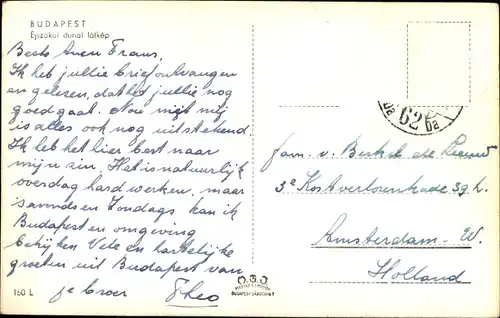 BUDAPEST
Éjszakai dunai látkép
Beste Annen Frans,
Ik heb jullie brief ontvangen
en gelezen, dat het jullie nog
goed gaat. Nou met mij
is alles ook nog uitstekend.
Ik heb het hier best naar
mijn zin. Het is natuurlijk
overdag hard werken, maar
samsdsen Zondags kan ik
Budapest en omgeving
bekijken Vele en hartelijke
groeten uit Budapest van
je broer Theo
160 L
62
ba
Fam. v. Berkel de Leeuw
3e Kostverlorenkade 39 h.
Amsterdam - W.
Holland